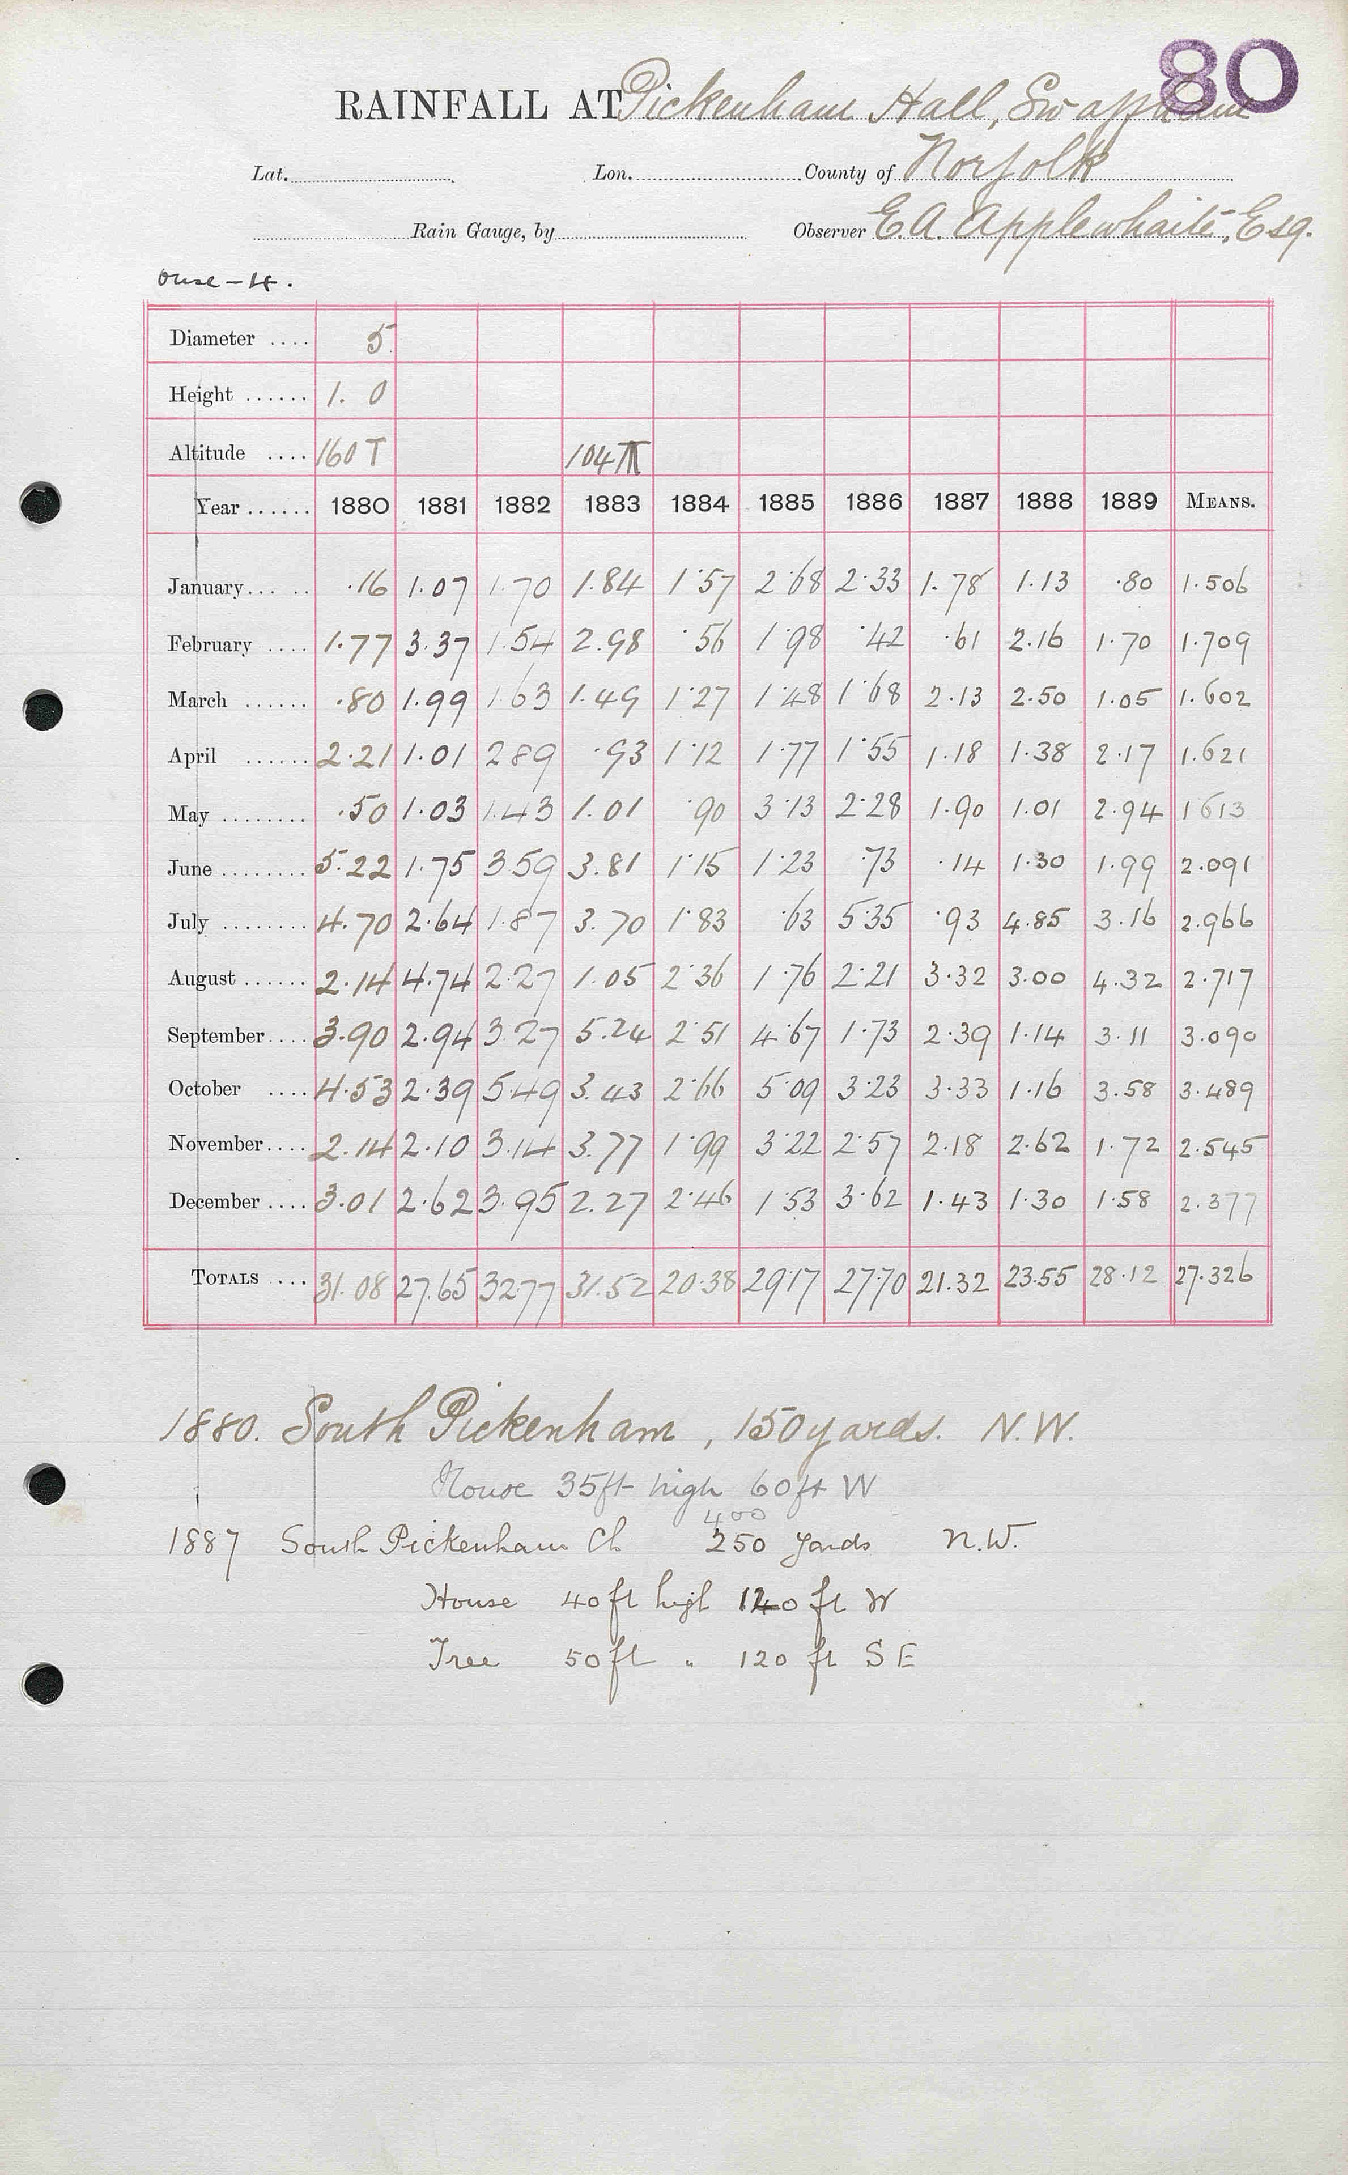 80
RAINFALL AT Pickenham Hall, Swaffham
Lat. Lon. County of Norfolk
Rain Gauge, by Observer E.A. Applewhaite, Esq.
Ouse - 4.
Diameter .... 5.
Height ...... 1. 0
Altitude .... 160 T 104
Year ...... 1880 1881 1882 1883 1884 1885 1886 1887 1888 1889 MEANS.
January ... .16 1.07 1.70 1.84 1.57 2.68 2.33 1.78 1.13 .80 1.506
February .... 1.77 3.37 1.54 2.98 .56 1.98 .42 .61 2.16 1.70 1.709
March ...... .80 1.99 1.63 1.49 1.27 1.48 1.68 2.13 2.50 1.05 1.602
April ...... 2.21 1.01 2.89 .93 1.12 1.77 1.55 1.18 1.38 2.17 1.621
May ........ .50 1.03 1.43 1.01 .90 3.13 2.28 1.90 1.01 2.94 1.613
June ........ 5.22 1.75 3.59 3.81 1.15 1.23 .73 .14 1.30 1.99 2.091
July ........ 4.70 2.64 1.87 3.70 1.83 .63 5.35 .93 4.85 3.16 2.966
August ...... 2.14 4.74 2.27 1.05 2.36 1.76 2.21 3.32 3.00 4.32 2.717
September .... 3.90 2.94 3.27 5.24 2.51 4.67 1.73 2.39 1.14 3.11 3.090
October .... 4.53 2.39 5.49 3.43 2.66 5.09 3.23 3.33 1.16 3.58 3.489
November .... 2.14 2.10 3.14 3.77 1.99 3.22 2.57 2.18 2.62 1.72 2.545
December .... 3.01 2.62 3.95 2.27 2.46 1.53 3.62 1.43 1.30 1.58 2.377
TOTALS .... 31.08 27.65 32.77 31.52 20.38 29.17 27.70 21.32 23.55 28.12 27.326
1880. South Pickenham, 150 yards. N.W.
House 35ft high 60ft W
400
1887 South Pickenham Ch 250 yards N.W.
House 40 ft high 120 ft W
Tree 50 ft " 120 ft S E